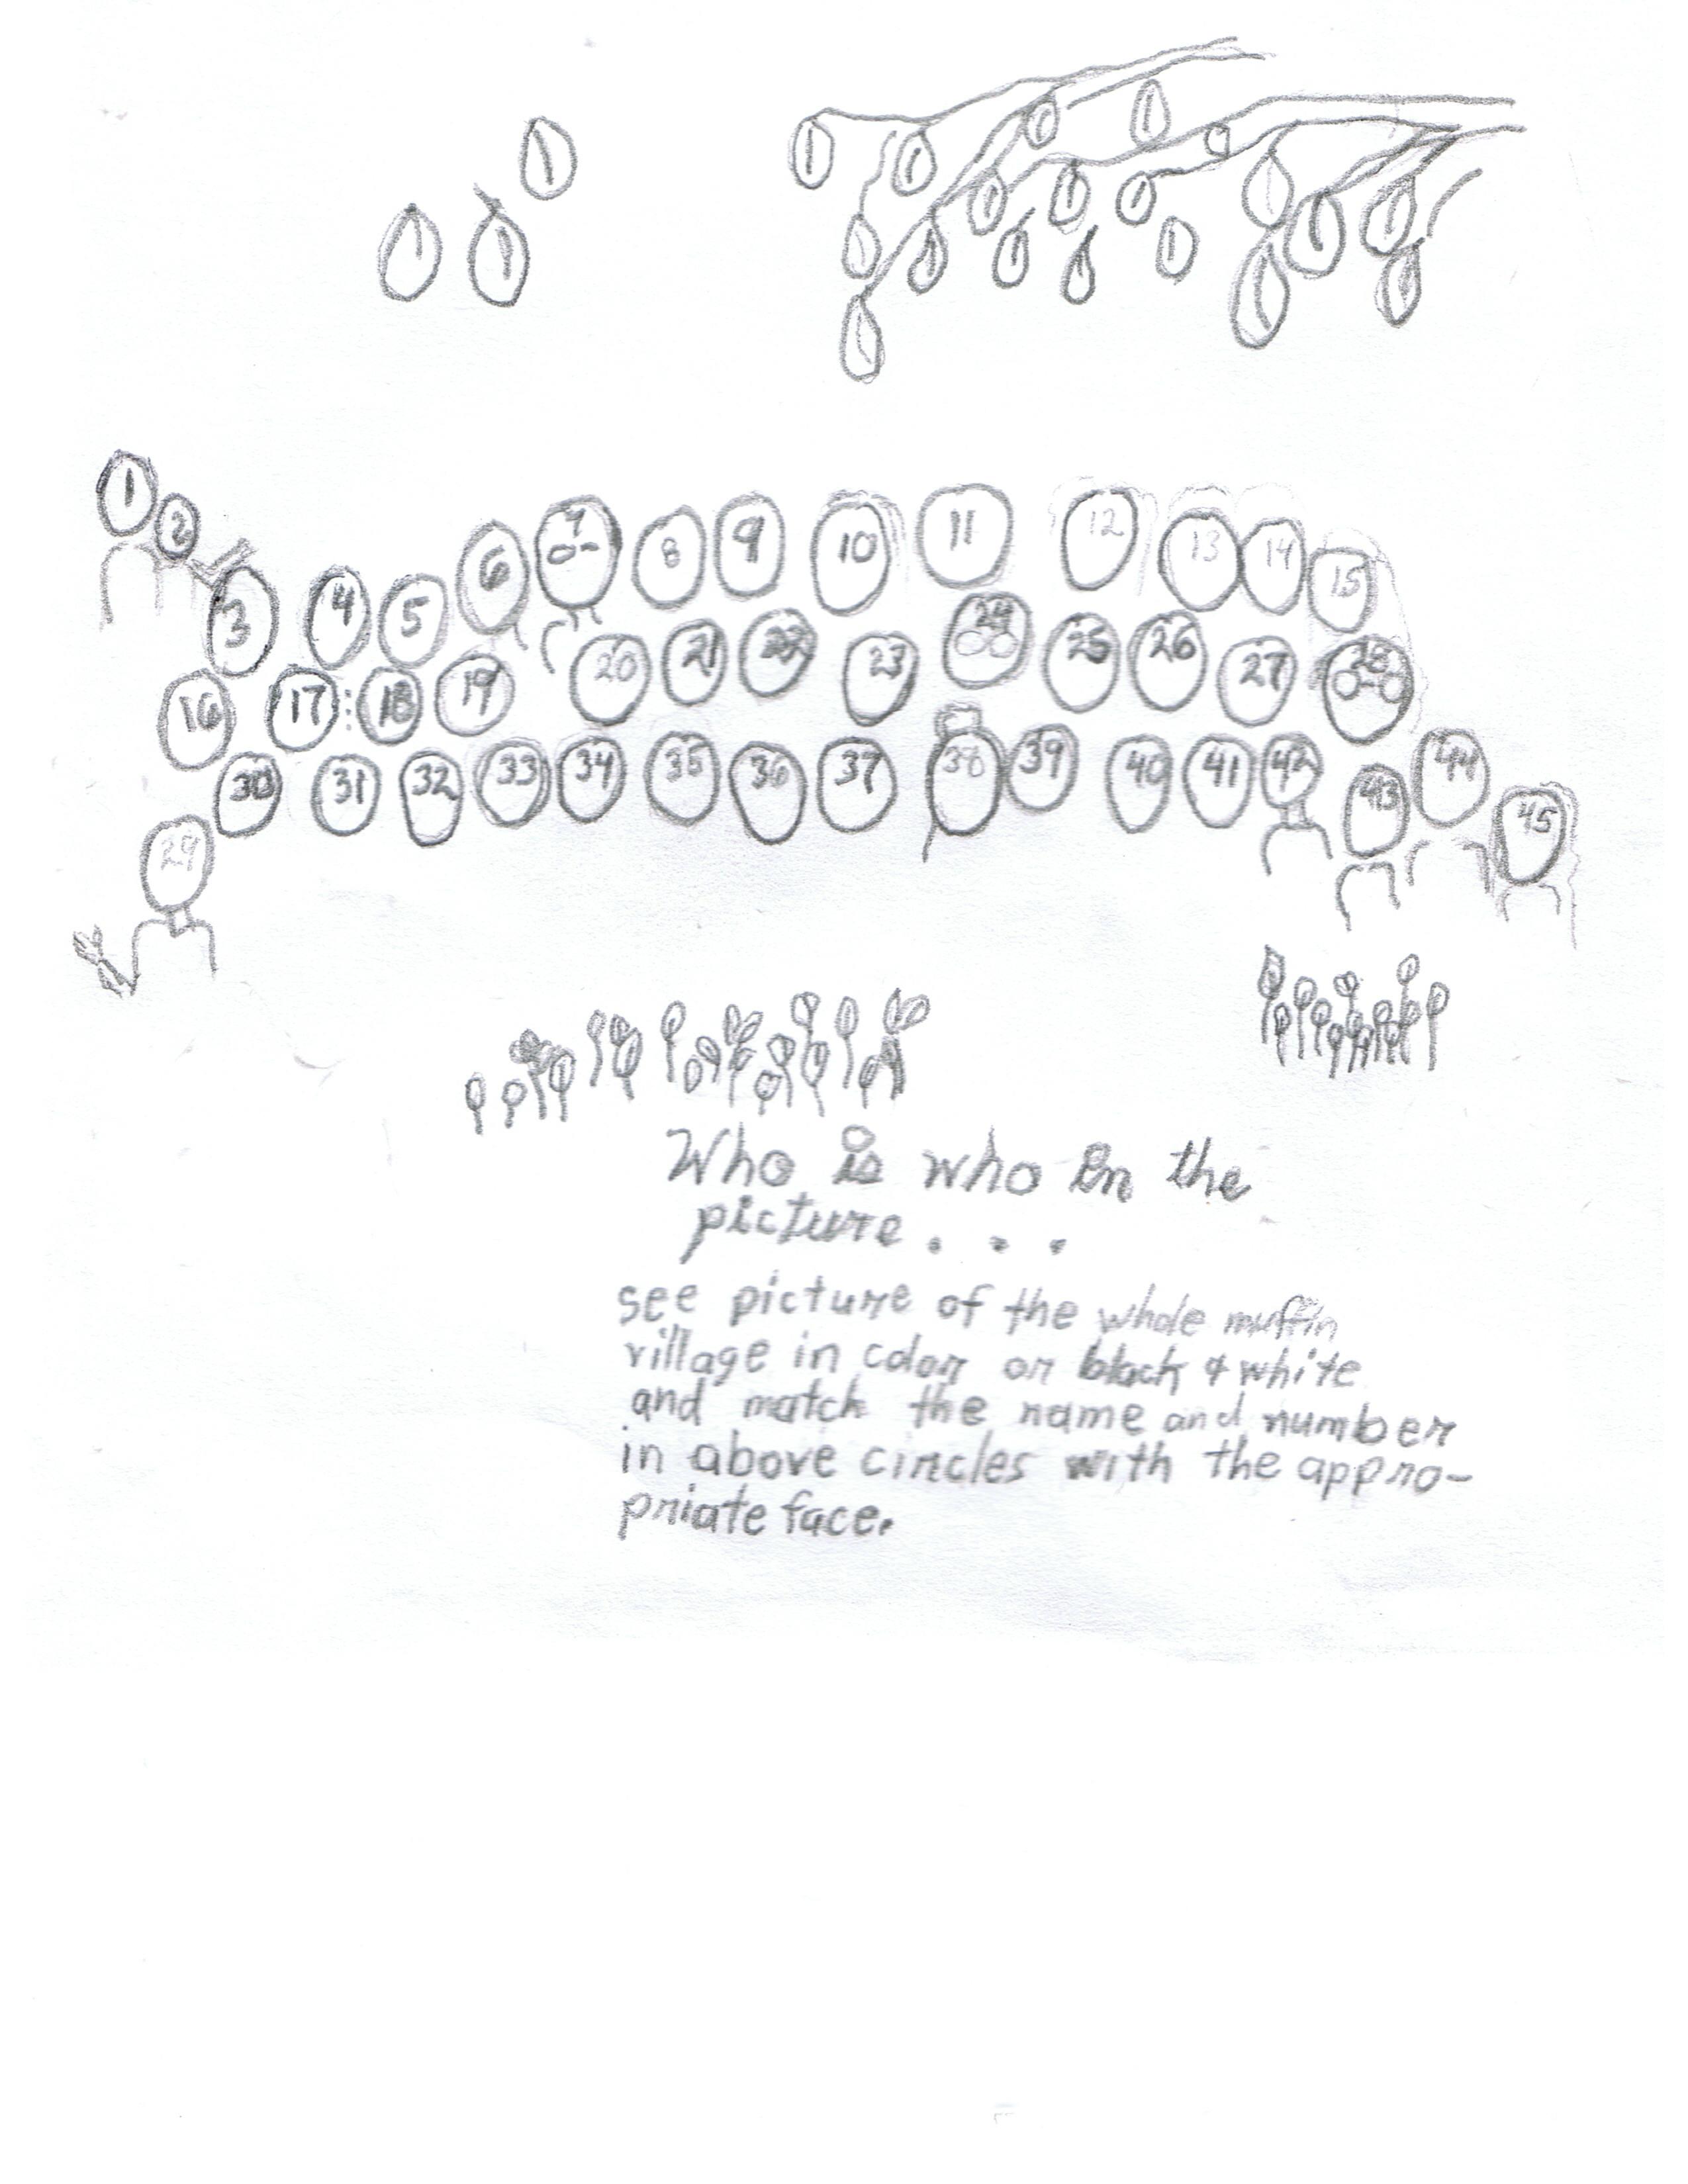 1
2
3 4 5 6 7 8 9 10 11 12 13 14 15
16 17 18 19 20 21 22 23 24 25 26 27 28
29
30 31 32 33 34 35 36 37 38 39 40 41 42 43 44 45
Who is who in the
picture . . .
see picture of the whole muffin
village in color or black & white
and match the name and number
in above circles with the appro-
priate face.